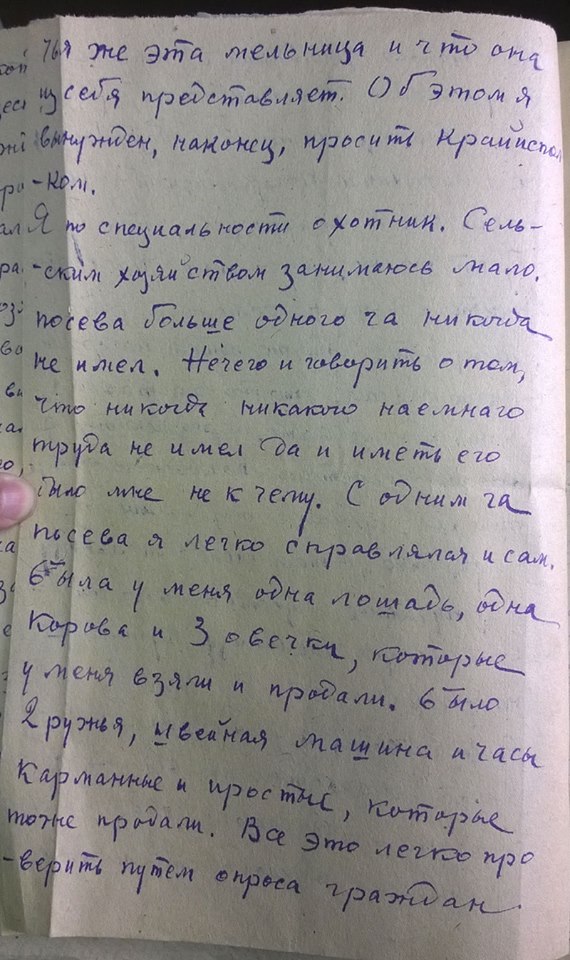 чья же эта мельница и что она
из себя представляет. Об этом я
вынужден, наконец, просить Крайиспол
-ком.
Я по специальности охотник. Сель-
-ским хозяйством занимаюсь мало.
посева больше одного га никогда
не имел. Нечего и говорить о том,
что никогда никакого наемнаго
труда не имел да и иметь его
было мне не к чему. С одним га
посева я легко справлялся и сам.
Была у меня одна лошадь, одна
корова и 3 овечки, которые
у меня взяли и продали. Было
2 ружья, швейная машина и часы
карманные и простые, которые
тоже продали. Все это легко про
-верить путем опроса граждан.